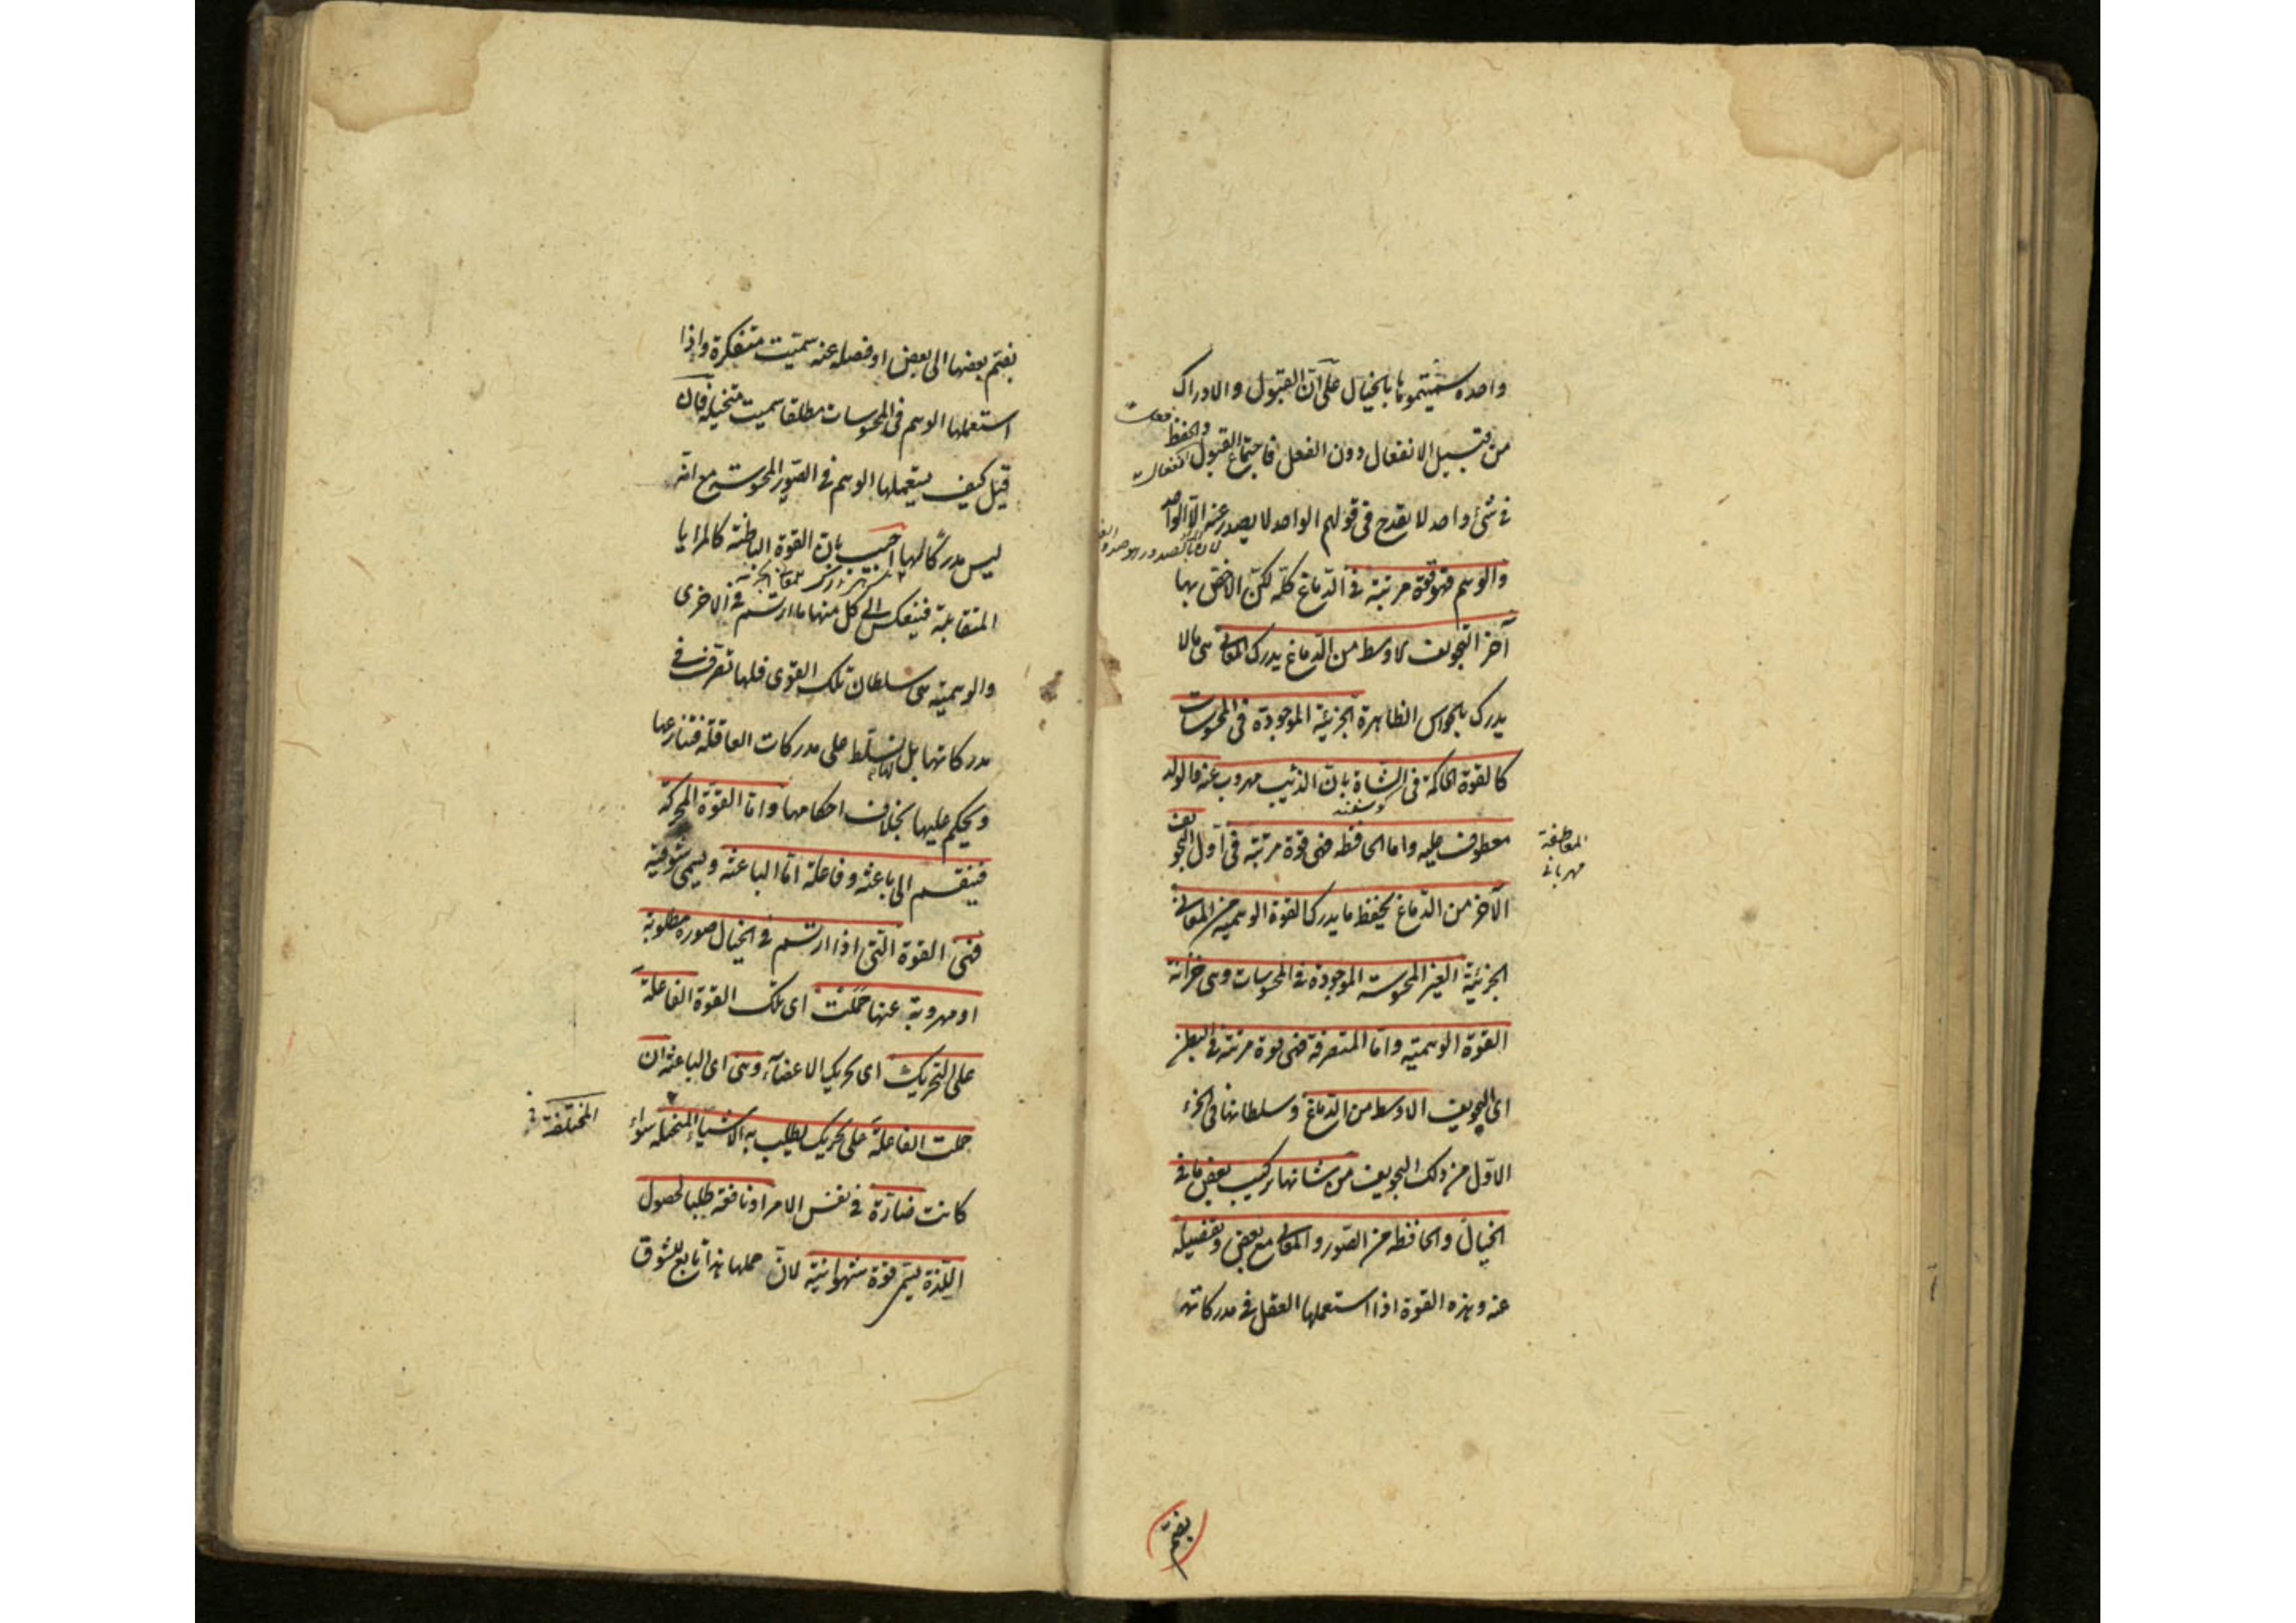 واحدة سميتموها بالخيال على ان القبول والادراك
من قبيل الانفعال دون الفعل فاجتماع القبول والحفظ
فى شئ واحد لا يقدح فى قولهم الواحد لا يصدر عنه الا الواحد
والوهم فهو قوة مرتبة فى الدماغ كله لكن الاخص بها
آخر التجويف الاوسط من الدماغ يدرك المعانى هى ما لا
يدرك بالحواس الظاهرة الجزئية الموجودة فى المحسوسات
كالقوة الحاكمة فى الشاة بان الذئب مهروب عنه والولد
كوسفند
معطوف عليه واما الحافظه فهى قوة مرتبة فى اول التجويف
العاطفة
مهربانى
الآخر من الدماغ يحفظ ما يدركه القوة الوهمية من المعانى
الجزئية الغير المحسوسة الموجودة فى المحسوسات وهى خزانة
القوة الوهمية واما المتصرفة فهى قوة مرتبة فى البطن
اى التجويف الاوسط من الدماغ وسلطانها فى الجزء
الاول من ذلك التجويف من شانها تركيب بعض ما فى
الخيال والحافظه من الصور والمعانى مع بعض وتفصيله
عنه وهذه القوة اذا استعملها العقل فى مدركاتها
بضم
بضم بعضها الى بعض او فصله عنه سميت متفكرة واذا
استعملها الوهم فى المحسوسات مطلقا سميت متخيله فان
قيل كيف يستعملها الوهم فى الصور المحسوسة مع انه
ليس مدركا لها اجيب بان القوة الباطنة كالمرايا
المتقابلة فينعكس الى كل منها ما ارتسم فى الاخرى
والوهمية هى سلطان تلك القوى فلها تصرف فى
مدركاتها بل لها تسلط على مدركات العاقلة فتنازعها
ويحكم عليها بخلاف احكامها واما القوة المحركة
فينقسم الى باعثة وفاعلة اما الباعثة ويسمى شوقية
فهى القوة التى اذا ارتسم فى الخيال صورة مطلوبة
او مهروبة عنها حملت اى تلك القوة الفاعلة
على التحريك اى تحريك الاعضاء وهى اى الباعثة ان
حملت الفاعلة على تحريك يطلب به الاشياء المتخيلة سواء
كانت ضارة فى نفس الامر او نافعة طلبا لحصول
اللذة يسمى قوة شهوانية لان حملها هذا تابع للشوق